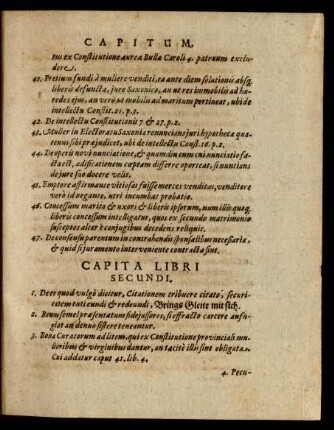 CAPITUM.
tus ex Constitutione aurea Bulla Caroli 4. patruum exclu-
dere.
41. Pretium fundi à muliere venditi, ea ante diem solutionis absq;
liberis defuncta, jure Saxonico, an ut res immobilis ad hæ-
redes ejus, an verò ut mobilis ad maritum pertineat, ubi de
intellectu Constit. 21. p. 3.
42. De intellectu Constitutionis 7 & 27. p. 2.
43. Mulier in Electoratu Saxoniæ renuncians juri hypothecæ qua-
tenus sibi præjudicet, ubi de intellectu Const. 16. p. 2.
44. De operis novi nunciatione, & quamdiu enm cui nunciatio fa-
cta est, ædificationem cœptam differre oporteat, si nuntians
de jure suo docere velit.
45. Emptore affirmante vitiosas fuisse merces venditas, venditore
verò id negante, utri incumbat probatio.
46. Concessum marito & uxori & liberis ipsorum, num illis quoq;
liberis concessum intelligatur, quos ex secundo matrimonio
susceptos alter è conjugibus decedens reliquit.
47. De consensu parentum in contrahendis sponsalibus necessario,
& quid si juramento interveniente contracta sint.
CAPITA LIBRI
SECUNDI.
1. De eo quod vulgò dicitur, Citationem tribuere citato, securi-
tatem tuti eundi & redeundi, Brings Gleite mit sich.
2. Reum semel præsentatum fidejussores, si effracto carcere aufu-
giat an denuò sistere teneantur.
3. Bona Curatorum ad litem, qui ex Constitutione provinciali mu-
lieribus & virginibus dantur, an tacitè illis sint obligata.
Cui addatur caput 41. lib. 4.
4. Pecu-